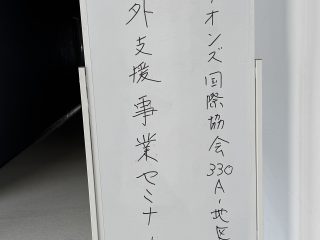 オンズ国際協会330A・地区
外支援事業セミナー